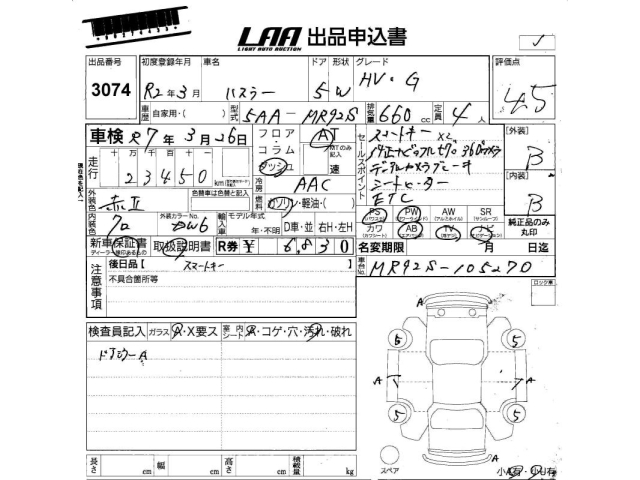 LAA 出品申込書
LIGHT AUTO AUCTION
出品番号
3074
初度登録年月
R2年3月
車名
ハスラー
ドア
5
形状
W
グレード
HV・G
評価点
4.5
車歴
自家用・( )
型式
5AA-MR92S
排気量
660cc
定員
4人
車検 R7年3月26日
走行
十万千百十
23450
km
フロア・コラム
ダッシュ
AT
速
冷房
AAC
燃料
ガソリン・軽油・( )
セールスポイント
スマートキー×2
デュアルカメラブレーキ
シートヒーター
ETC
[外装]
B
[内装]
B
純正品のみ丸印
外装色
赤Ⅱ
色替車は色替と記入
内装色
クロ
外装カラーNo.
輸入車
モデル年式
年・不明
D車・並
右H・左H
PS
PW
AW
SR
カワ
AB
TV
ナビ
新車保証書
取扱説明書
R券¥
6,830
名変期限
月
日迄
車台No.
MR92S-105270
注意事項
後日品[ スマートキー ]
不具合箇所等
ロック車
検査員記入
ガラス
A・X要ス
室内シート
A・コゲ・穴・汚れ・破れ
ドアミラーA
A
5
5
A
A
5
5
A
スペア
長さ
cm
幅
cm
高さ
cm
積載量
kg
小A有・小U有